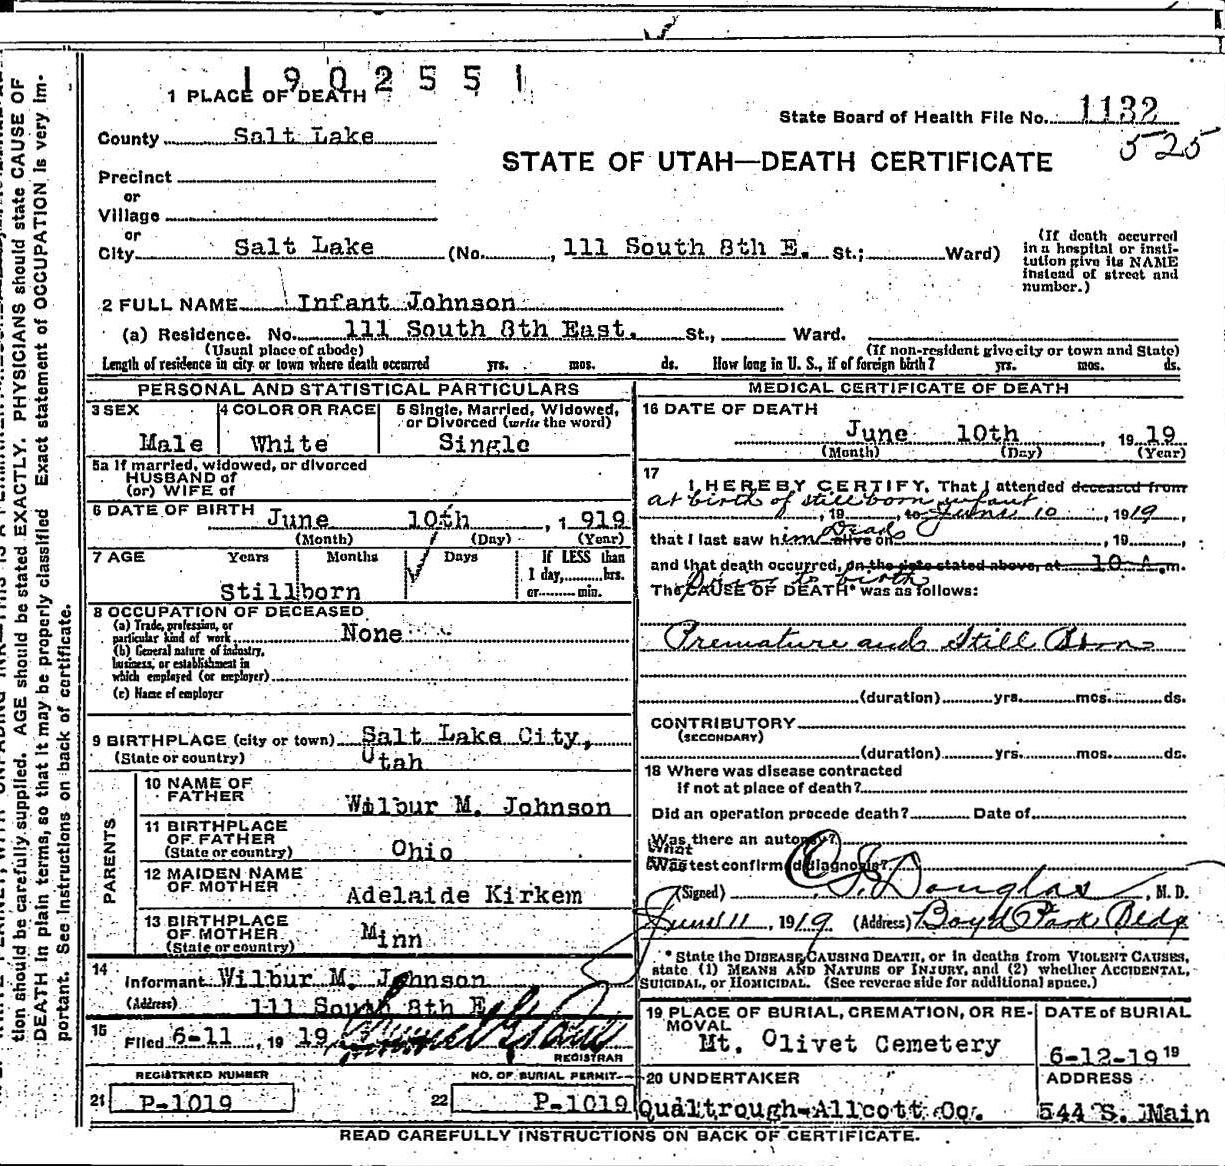 1902551
1 PLACE OF DEATH
State Board of Health File No. 1132
525
County Salt Lake
STATE OF UTAH—DEATH CERTIFICATE
Precinct
or
Village
or
City Salt Lake (No. , 111 South 8th E. St.; Ward)
(If death occurred
in a hospital or insti-
tution give its NAME
instead of street and
number.)
2 FULL NAME Infant Johnson
(a) Residence. No. 111 South 8th East. St., Ward.
(Usual place of abode) (If non-resident give city or town and State)
Length of residence in city or town where death occurred yrs. mos. ds. How long in U. S., if of foreign birth? yrs. mos. ds.
PERSONAL AND STATISTICAL PARTICULARS
3 SEX
Male
4 COLOR OR RACE
White
5 Single, Married, Widowed,
or Divorced (write the word)
Single
5a If married, widowed, or divorced
HUSBAND of
(or) WIFE of
6 DATE OF BIRTH June 10th , 1 919
(Month) (Day) (Year)
7 AGE Years Months Days If LESS than
1 day, hrs.
or min.
Stillborn
8 OCCUPATION OF DECEASED
(a) Trade, profession, or
particular kind of work None
(b) General nature of industry,
business, or establishment in
which employed (or employer)
(c) Name of employer
9 BIRTHPLACE (city or town) Salt Lake City,
(State or country) Utah
PARENTS
10 NAME OF
FATHER Wilbur M. Johnson
11 BIRTHPLACE
OF FATHER
(State or country) Ohio
12 MAIDEN NAME
OF MOTHER Adelaide Kirkem
13 BIRTHPLACE
OF MOTHER
(State or country) Minn
14
Informant Wilbur M. Johnson
(Address) 111 South 8th E
15
Filed 6-11, 19 19
REGISTRAR
REGISTERED NUMBER
21 P-1019
NO. OF BURIAL PERMIT
22 P-1019
MEDICAL CERTIFICATE OF DEATH
16 DATE OF DEATH
June 10th , 19 19
(Month) (Day) (Year)
17
I HEREBY CERTIFY, That I attended deceased from
at birth of still born infant
, 19 , to June 10 , 1919,
that I last saw him Dead alive on , 19 ,
and that death occurred, on the date stated above, at 10 A. m.
Prior to birth
The CAUSE OF DEATH* was as follows:
Premature and Still Born
(duration) yrs. mos. ds.
CONTRIBUTORY
(SECONDARY)
(duration) yrs. mos. ds.
18 Where was disease contracted
if not at place of death?
Did an operation precede death? Date of
Was there an autopsy?
What
Was test confirmed diagnosis?
(Signed) Douglas, M. D.
June 11, 1919 (Address) Boyd Park Bldg
* State the DISEASE CAUSING DEATH, or in deaths from VIOLENT CAUSES,
state (1) MEANS AND NATURE OF INJURY, and (2) whether ACCIDENTAL,
SUICIDAL, or HOMICIDAL. (See reverse side for additional space.)
19 PLACE OF BURIAL, CREMATION, OR RE-
MOVAL
Mt. Olivet Cemetery
DATE of BURIAL
6-12-19 19
20 UNDERTAKER
Qualtrough-Allcott Co.
ADDRESS
544 S. Main
READ CAREFULLY INSTRUCTIONS ON BACK OF CERTIFICATE.
tion should be carefully supplied. AGE should be stated EXACTLY. PHYSICIANS should state CAUSE OF
DEATH in plain terms, so that it may be properly classified. Exact statement of OCCUPATION is very im-
portant. See Instructions on back of certificate.